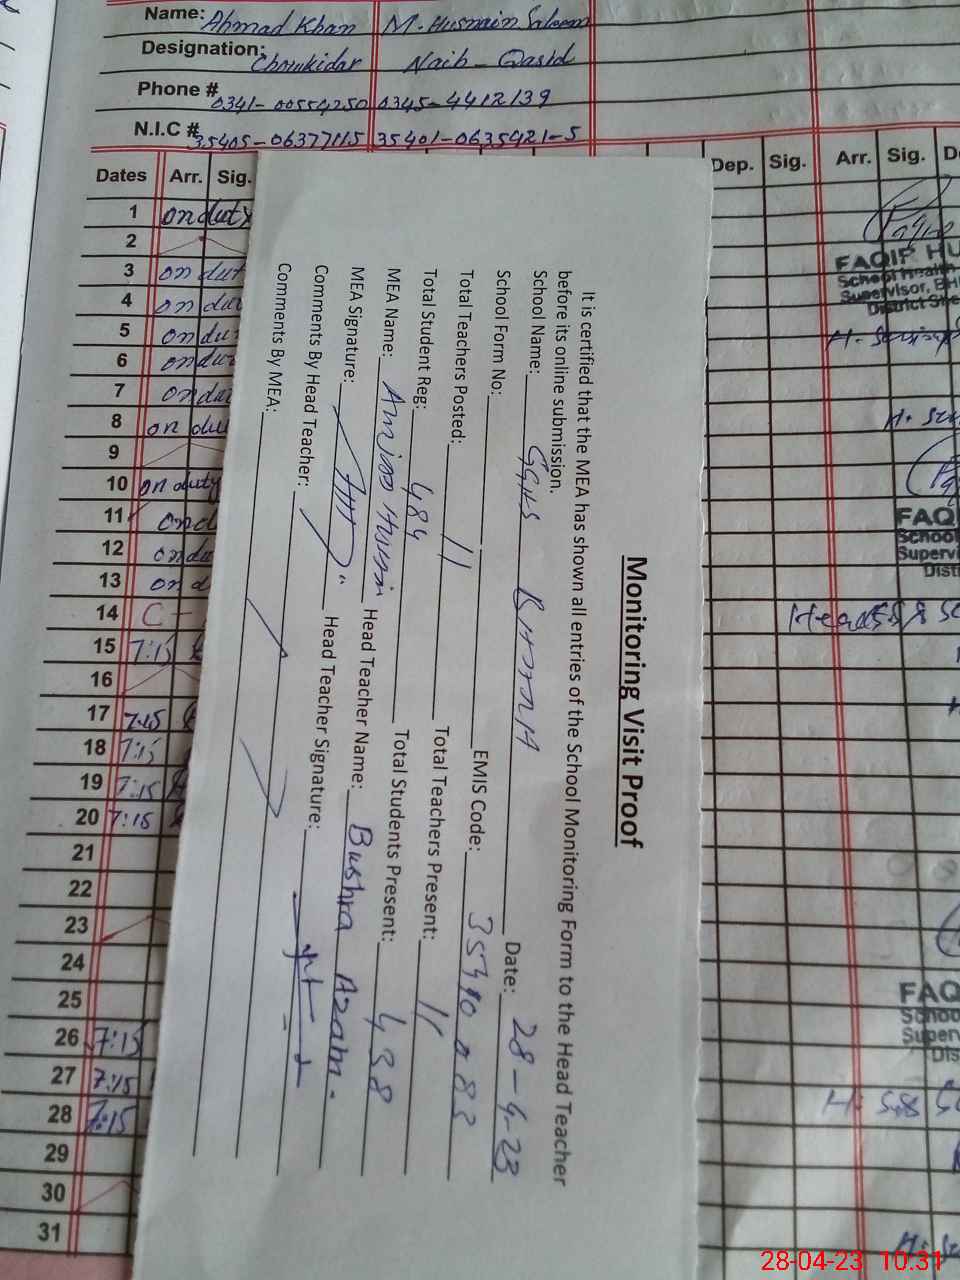 Name: Ahmad Khan M. Husnain Saleem
Designation: Chowkidar Naib-Qasid
Phone # 0341-00559250 0345-4412139
N.I.C # 35405-06377115 35401-0635921-5
Dates Arr. Sig. Dep. Sig. Arr. Sig.
1 on duty
2
3 on dut
4 on du
5 on du
6 on du
7 on du
8 on du
9
10 on duty
11 on d
12 on du
13 on d
14 C-
15 7:15
16
17 7:15
18 7:15
19 7:15
20 7:15
21
22
23
24
25
26 7:15
27 7:15
28 7:15
29
30
31
FAQIP HU
School Health
Supervisor, BH
District She
FAQ
School
Supervi
Dist
FAQ
Schoo
Superv
Dis
Monitoring Visit Proof
It is certified that the MEA has shown all entries of the School Monitoring Form to the Head Teacher
before its online submission.
School Name: GGHS Date: 28-4-23
School Form No: EMIS Code:
Total Teachers Posted: 11 Total Teachers Present: 11
Total Student Reg: 484 Total Students Present: 438
MEA Name: Head Teacher Name: Bushra Azam.
MEA Signature: Head Teacher Signature:
Comments By Head Teacher:
Comments By MEA:
28-04-23 10:31